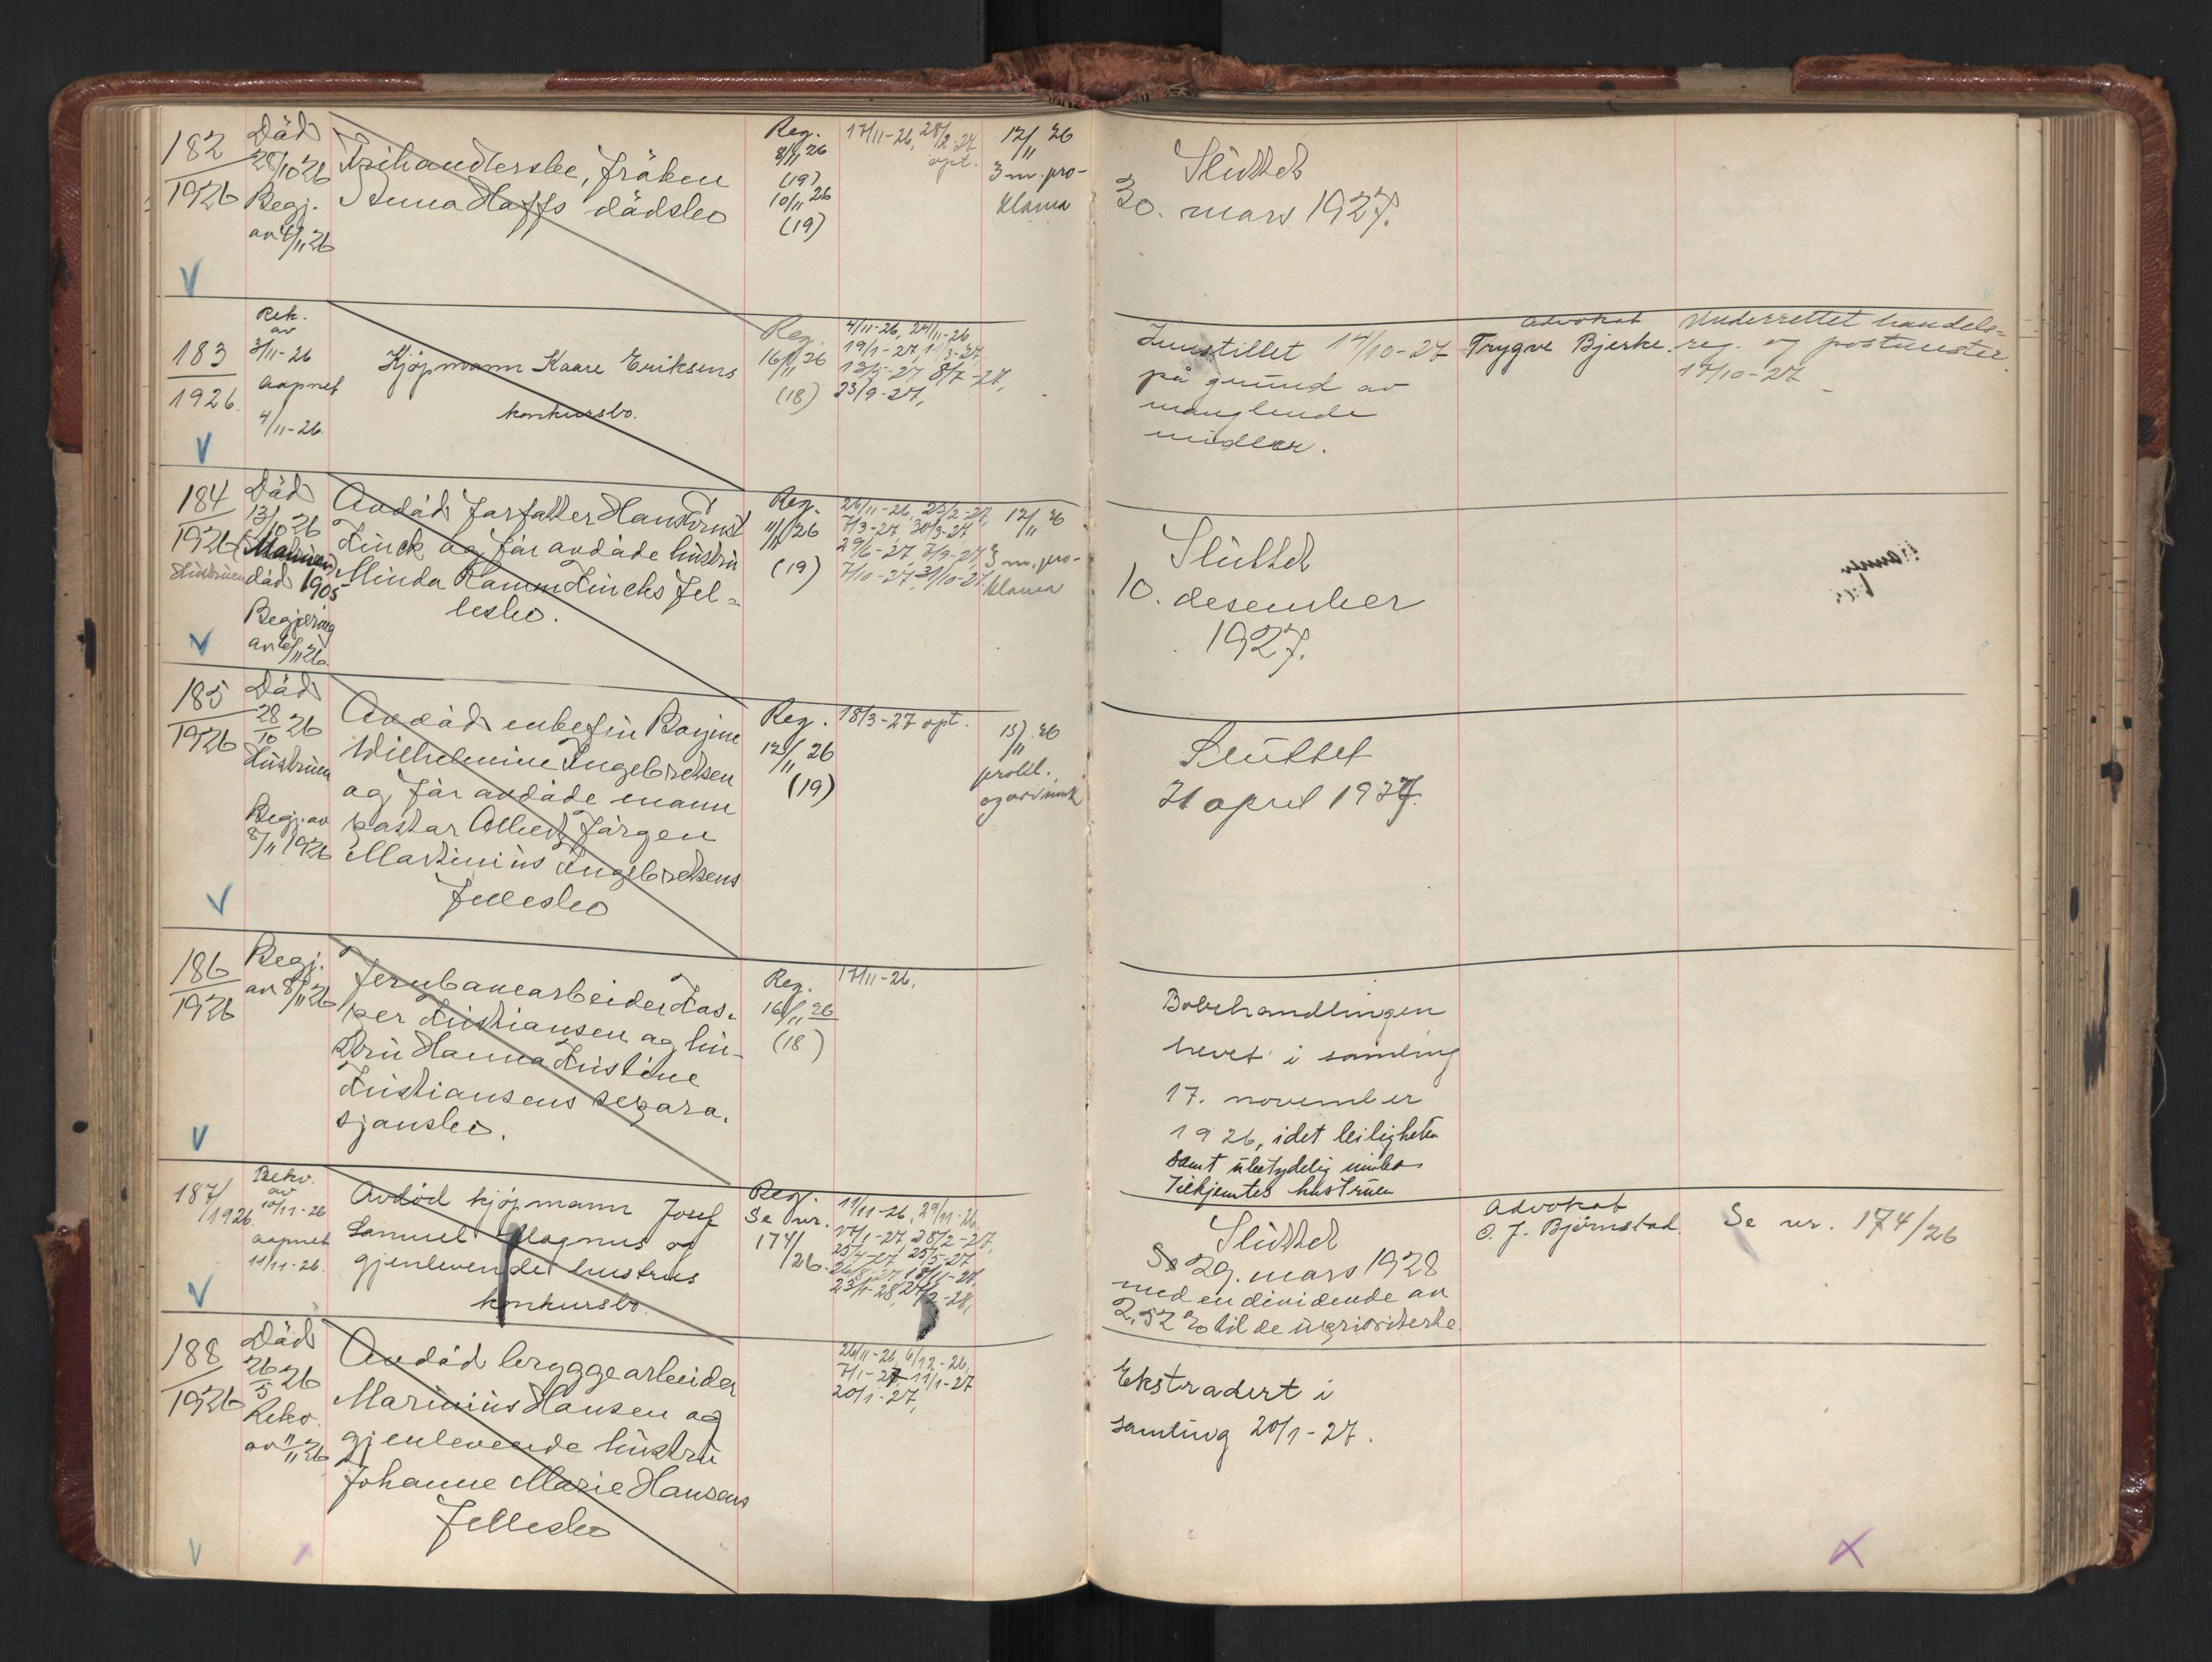 182
1926
Död
28/10 26
Begj.
av 4/11 26
Frihandlerske, fröken
Anna Hoffs dödsbo
Reg.
8/11 26
(19)
10/11 26
(19)
17/11-26, 28/2-27
opt.
12/11 26
3 m. pro-
klama
Sluttet
30. mars 1927.
183
1926.
Rek.
av
3/11-26
aapnet
4/11-26.
Kjøpmann Kaare Eriksens
konkursbo.
Reg.
16/11 26
(18)
4/11-26, 24/11-26
19/1-27,
13/5-27, 8/7-27,
23/9-27,
Innstillet 14/10-27
på grund av
manglende
midler.
advokat
Trygve Bjerke.
Underrettet handels-
reg. og postmester.
14/10-27
184
1926
Död
13/10 26
Hustruen död 1905
Begjering
av 6/11 26.
Avdöd forfatter Hans Ernst
Kinck og för avdöde hustru
Minda Ramm Kincks fel-
lesbo.
Reg.
11/11 26
(19)
26/11-26, 25/2-27,
7/3-27, 30/3-27
29/6-27, 7/9-27,
7/10-27, 31/10-27.
12/11 26
3 m. pro-
klama
Sluttet
10. desember
1927.
185
1926
Död
28/10 26
Hustruen
Begj. av
8/11 1926
Avdöd enkefru Ragine
Wilhelmine Ingebretsen
og för avdöde mann
pastor Albert Jörgen
Martinius Ingebretsens
Fellesbo
Reg.
12/11 26
(19)
18/3-27 opt.
15/11 26
prokl.
Sluttet
21 april 1927.
186
1926
Begj.
av 8/11 26
Jernbanearbeider Kas-
per Kristiansen og hu-
stru Hanna Kristine
Kristiansens separa-
sjonsbo.
Reg.
16/11 26
(18)
17/11-26.
Bobehandlingen
hevet i samling
17. november
1926, idet leiligheten
samt ubetydelig innbo
tilkjentes hustruen
187/
1926.
Rekv.
av
10/11-26
aapnet
11/11-26.
Avdöd kjøpmann Josef
Samuel Magnus og
gjenlevende hustrus
konkursbo.
Reg.
Se nr.
174/
26.
11/11-26, 29/11-26
17/1-27, 28/2-27,
25/4-27, 25/5-27
26/8-27, 18/11-27,
23/1-28, 24/2-28,
Sluttet
29. mars 1928
med en dividende av
2,52 % til de uprioriterte.
advokat
C. J. Björnstad.
Se nr. 174/26
188
1926
Död
26/5 26
Rekv.
av 11/11 26
Avdöd bryggearbeider
Marinius Hansen og
gjenlevende hustru
Johanne Marie Hansens
Fellesbo
26/11-26, 6/12-26,
7/1-27, 11/1-27
20/1-27,
Ekstradert i
samling 20/1-27.